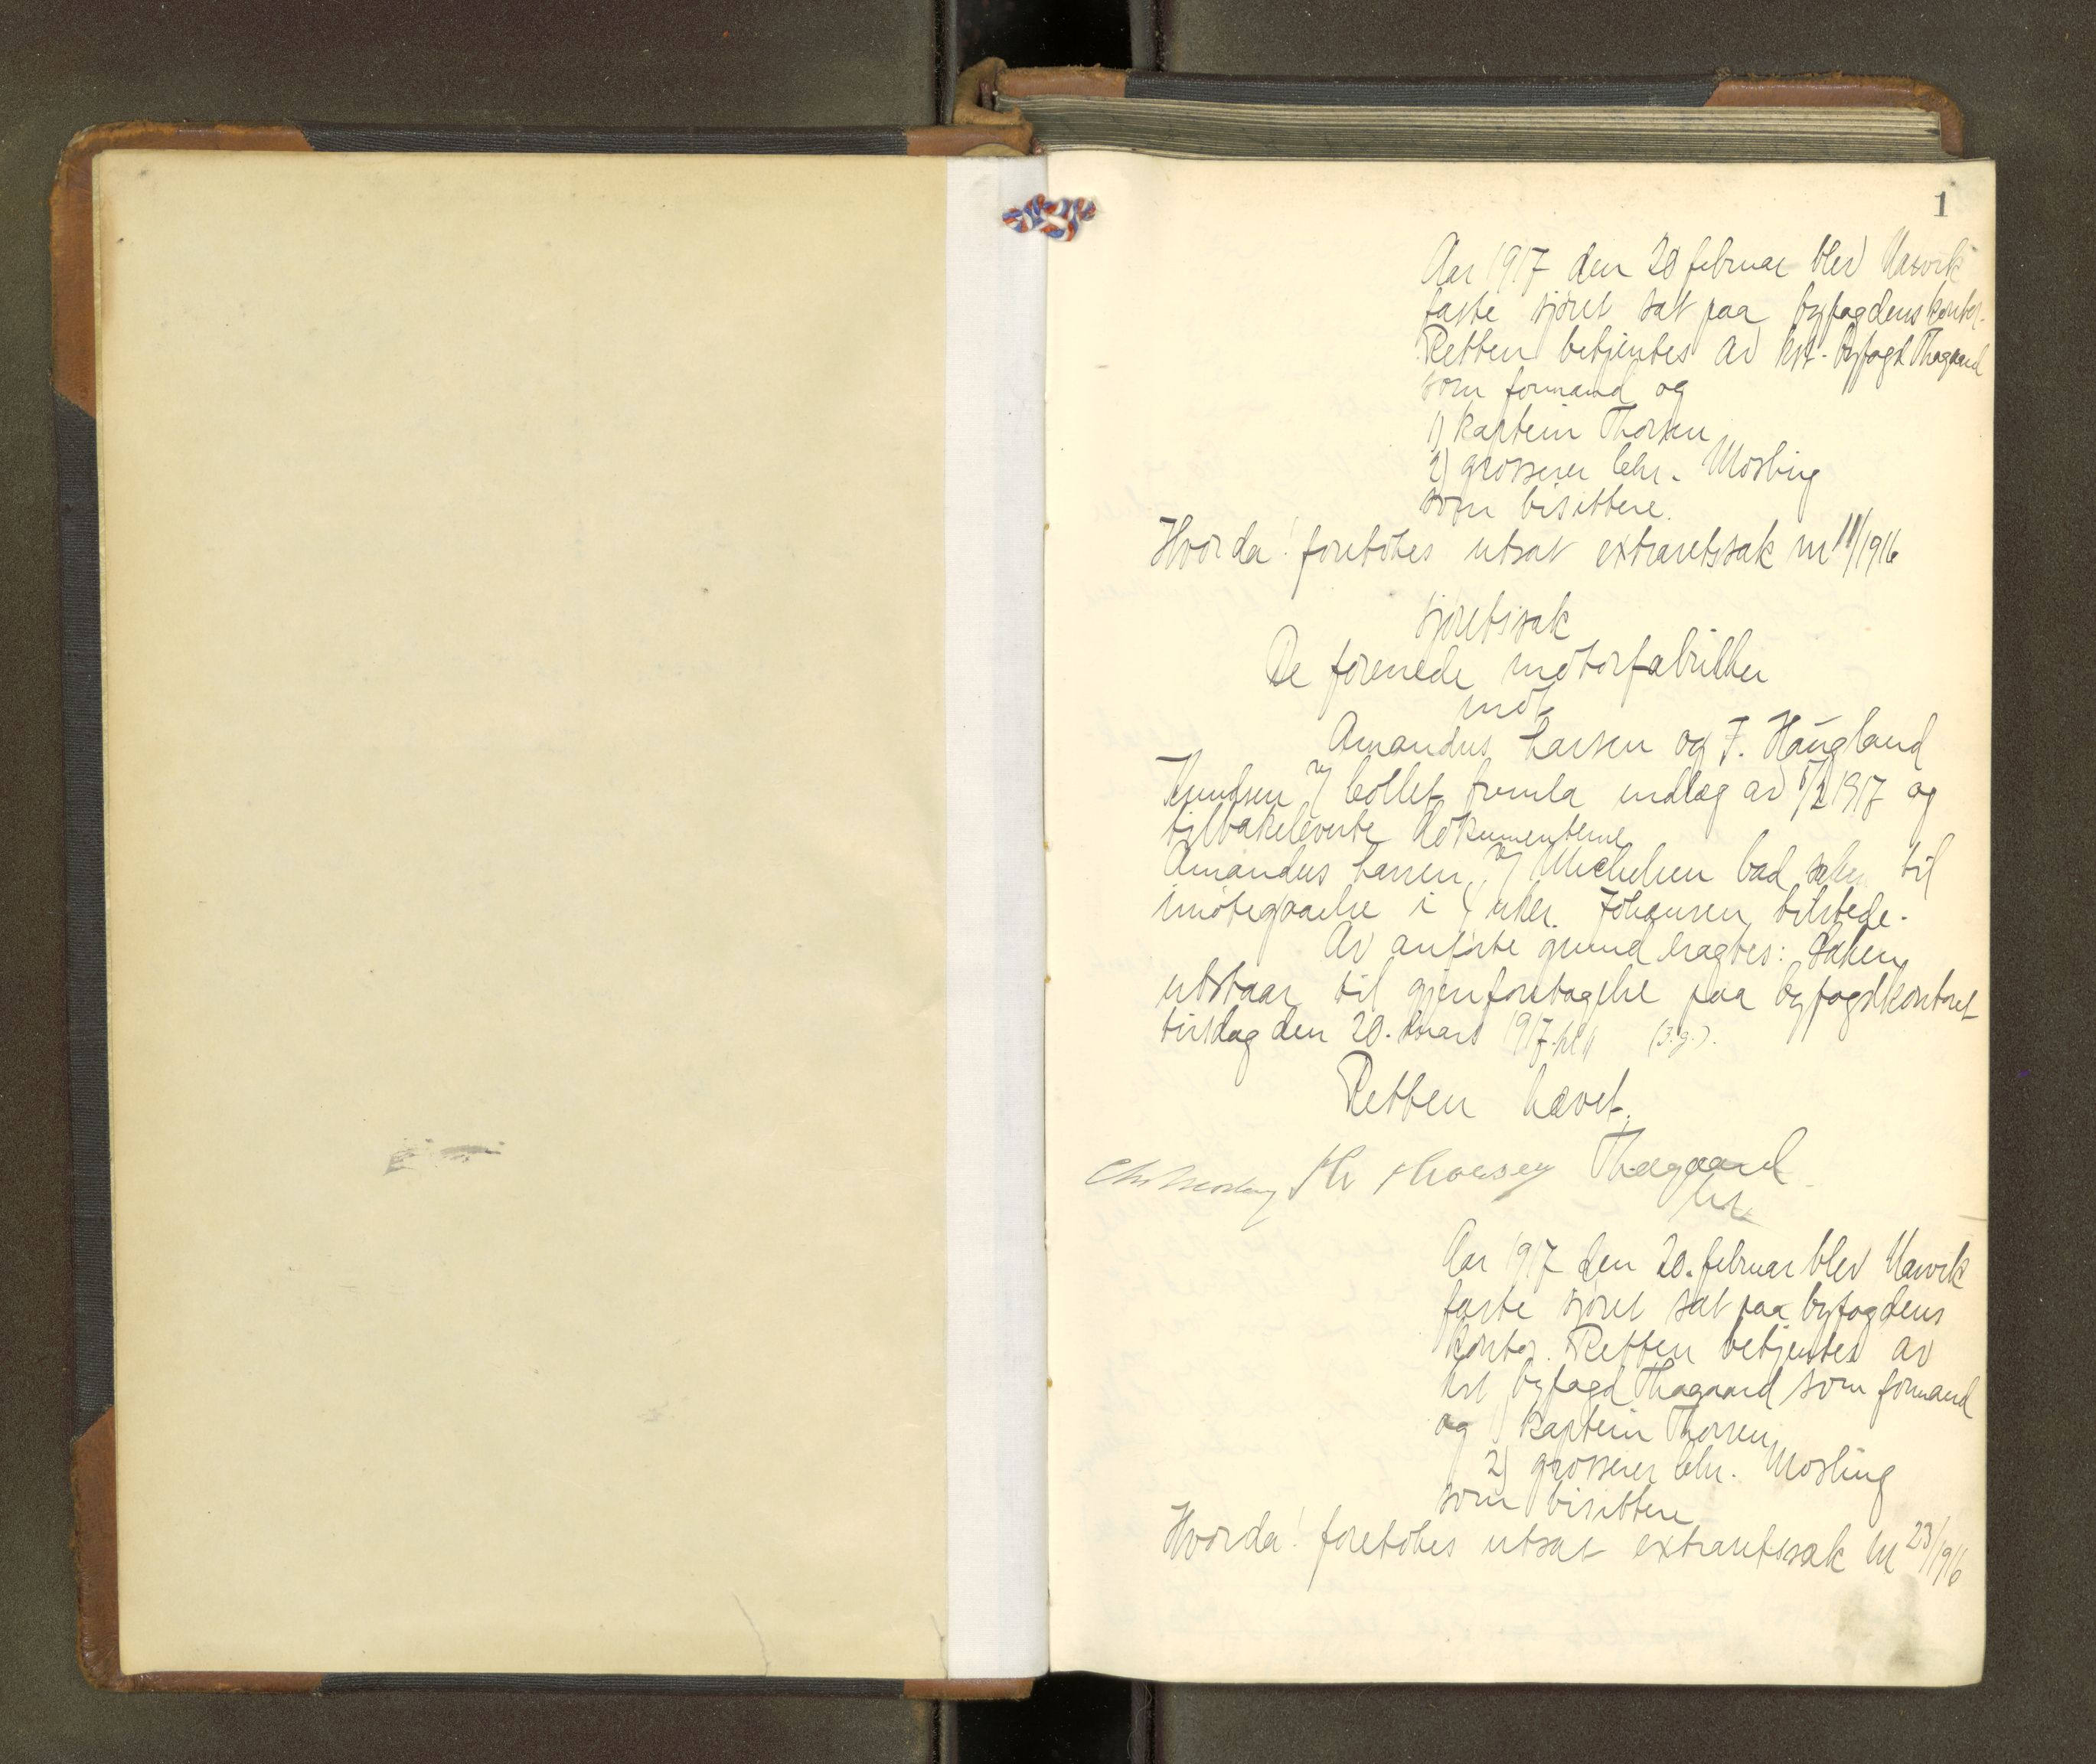 1
Aar 1917 den 20 februar blev Narvik
faste sjøret sat paa byfogdens kontor.
Retten betjentes av kst. byfogd Thagaard
som formand og
1) kaptein Thorsen
2) grosserer Chr. Mosling
som bisittere.
Hvorda! foretokes utsat extraretssak nr 11/1916
sjøretssak
De forenede motorfabrikker
mot
Amandus Larsen og F. Haugland
Knudsen v/ Collet fremla indlæg av 1917 og
tilbakeleverte dokumenterne
Amandus Larsen v/ Michelsen bad saken til
imøtegaaelse i 4 uker. Johansen tilstede.
Av anførte grund eragtes: Saken
utstaar til gjenforetagelse paa byfogdkontoret
tirsdag den 20. mars 1917 kl 11 (3.g.).
Retten hævet.
Chr Mosling Thorsen Thagaard
kst.
Aar 1917 den 20. februar blev Narvik
faste sjøret sat paa byfogdens
kontor. Retten betjentes av
kst byfogd Thagaard som formand
og 1) kaptein Thorsen
2) grosserer Chr. Mosling
som bisittere
Hvorda! foretokes utsat extraretssak nr 23/1916